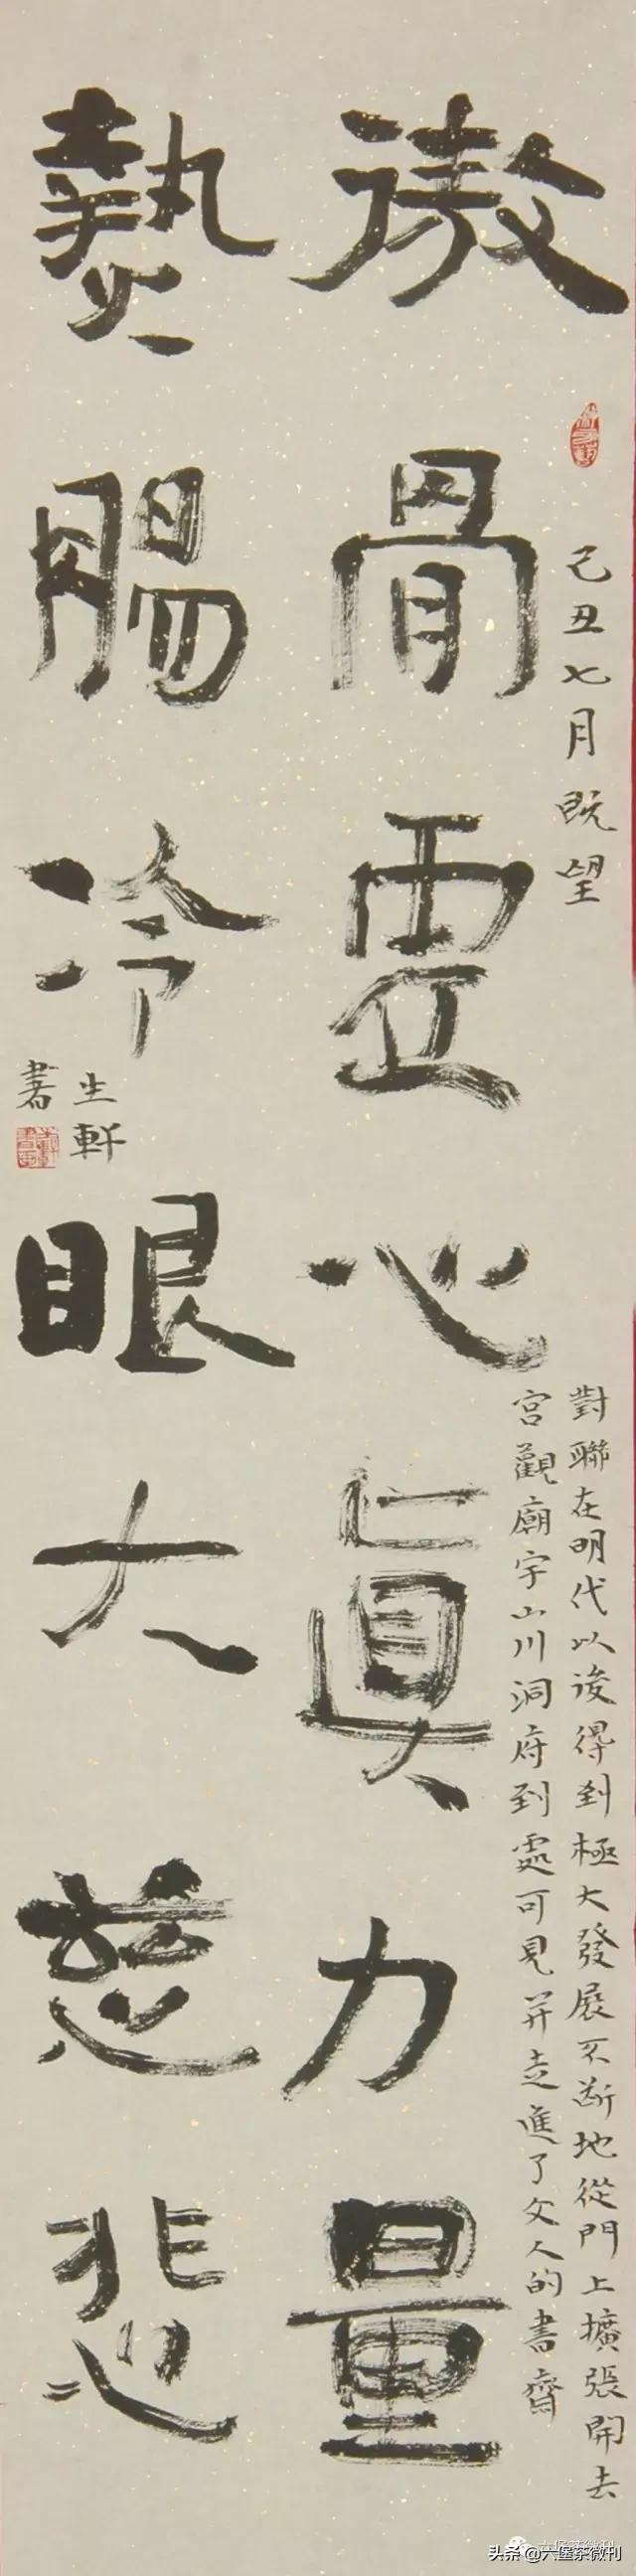 己丑七月既望
對聯在明代以後得到極大發展不斷地從門上擴張開去
宮觀廟宇山川洞府到處可見并走進了文人的書齋
傲骨虛心眞力量
熱腸冷眼大慈悲
生軒
書
六堡茶微刊
头条 @六堡茶微刊